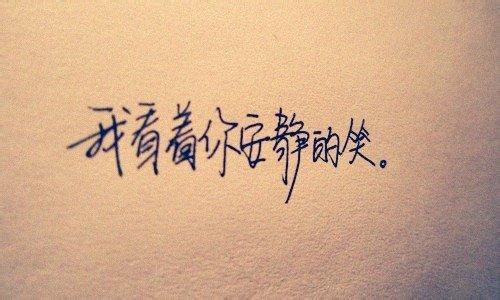 我看着你安静的笑。